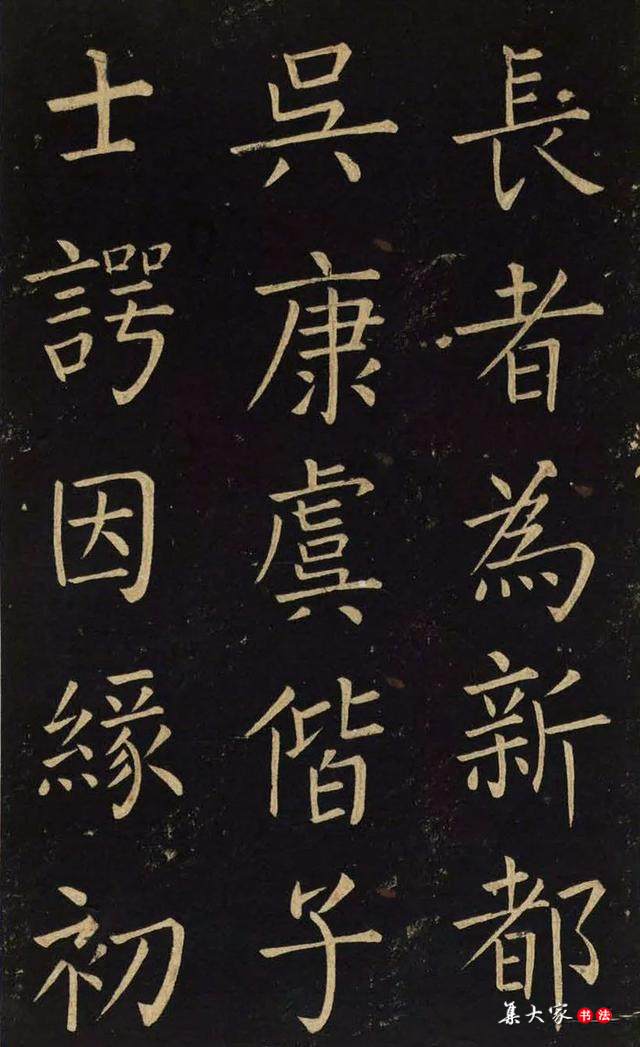 長者為新都
吳康虞偕子
士諤因緣初
集大家书法